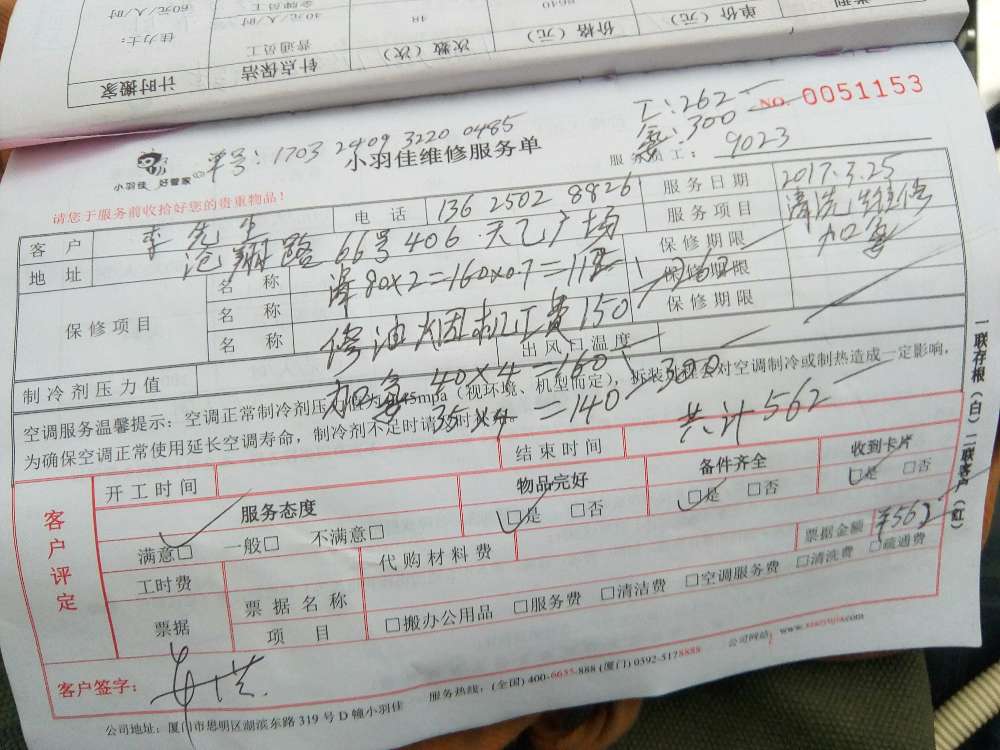 计时搬家 针点保洁 次数（次） 价格（元） 单价（元） 类别
佳力士： 普通员工 40元/人/时 48
金牌员工 60元/人/时 8640
工：262
NO. 0051153
单号：1703 2409 3220 0485
300
小羽佳 好管家
小羽佳维修服务单
服务员工： 9023
请您于服务前收拾好您的贵重物品！
客户 李先生 电话 136 2502 8826 服务日期 2017.3.25
地址 沧湖路66号406.天乙广场 服务项目 清洗维修加氟
保修项目 名称 80x2=160x0.7=112 保修期限
名称 修油烟机工费150 262 保修期限
名称 保修期限
制冷剂压力值 出风口温度
加氟 40x4=160 300
35x4=140
空调服务温馨提示：空调正常制冷剂压力值为0.45mpa（视环境、机型而定），拆装机会对空调制冷或制热造成一定影响，
为确保空调正常使用延长空调寿命，制冷剂不足时请及时
共计562
客户评定 开工时间 结束时间
服务态度 物品完好 备件齐全 收到卡片
满意□ 一般□ 不满意□ □是 □否 □是 □否 □是 □否
工时费 代购材料费 票据金额 ¥562
票据 票据名称
项目 □搬办公用品 □服务费 □清洁费 □空调服务费 □清洗费 □疏通费
客户签字：
服务热线：(全国) 400-6655-888 (厦门) 0592-5178888
公司网站：www.xiaoyujia.com
公司地址：厦门市思明区湖滨东路319号D幢小羽佳
一联存根（白） 二联客户（红）